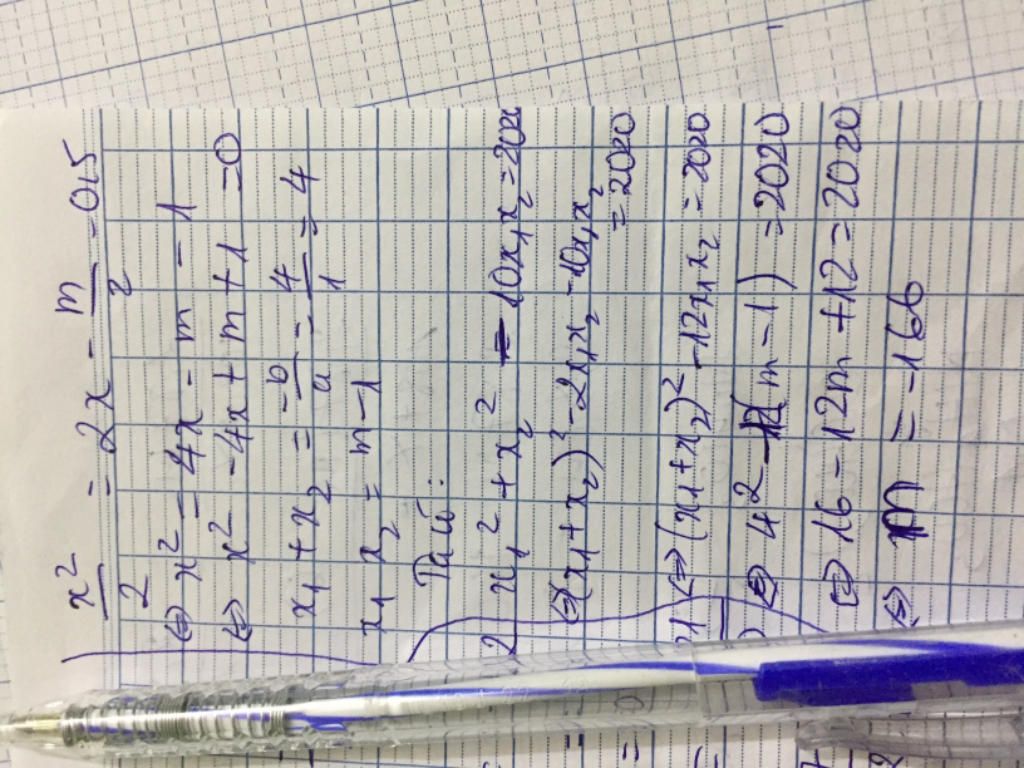 x²/2 = 2x - m/2 - 0,5
⇔ x² = 4x - m - 1
⇔ x² - 4x + m + 1 = 0
x₁ + x₂ = -b/a = 4/1 = 4
x₁ x₂ = m - 1
Ta có :
x₁² + x₂² - 10x₁x₂ = 2020
⇔ (x₁ + x₂)² - 2x₁x₂ - 10x₁x₂
= 2020
⇔ (x₁ + x₂)² - 12x₁x₂ = 2020
⇔ 4² - 12(m - 1) = 2020
⇔ 16 - 12m + 12 = 2020
⇔ m = -166